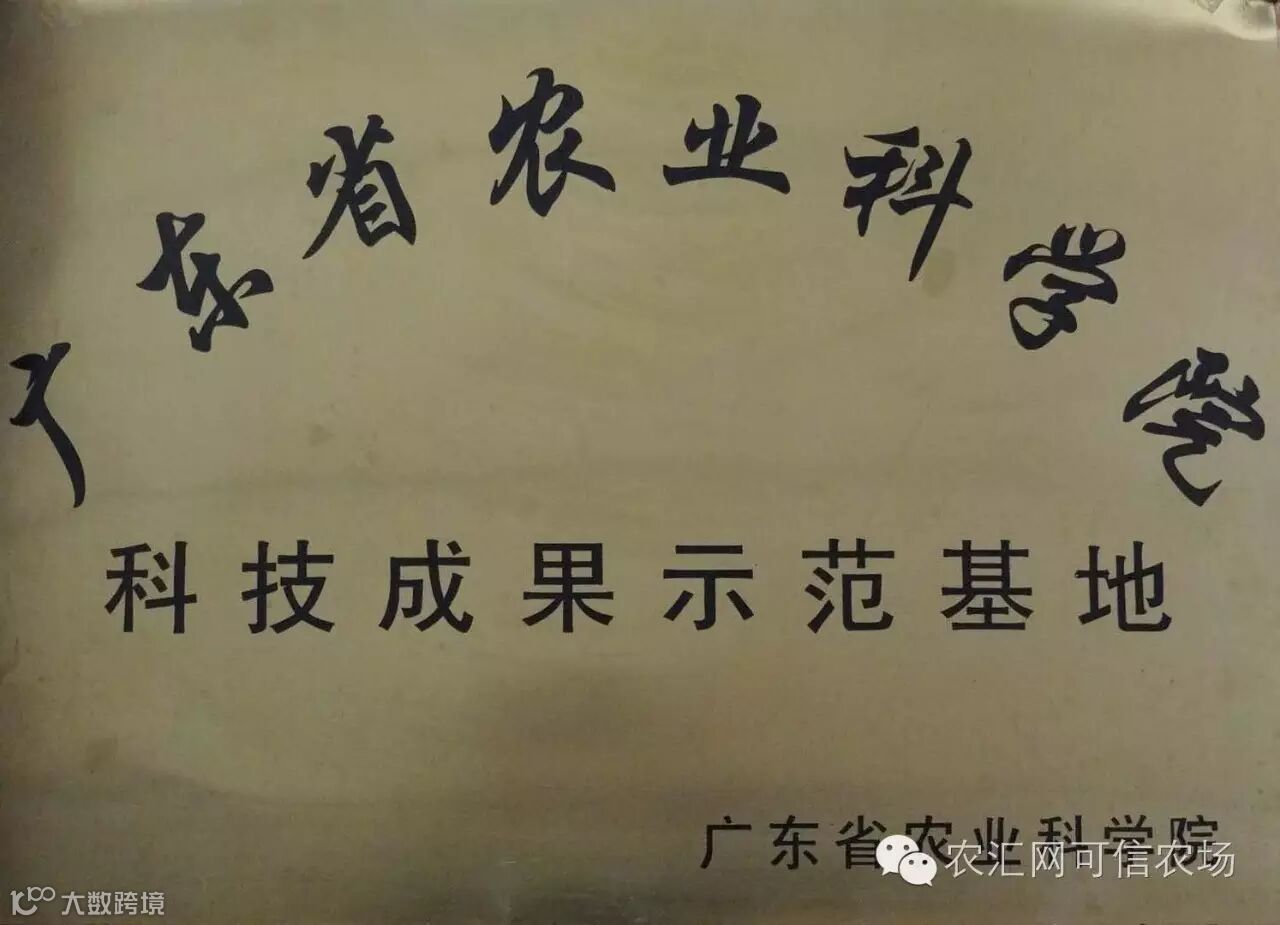 广东省农业科学院
科技成果示范基地
广东省农业科学院
农汇网可信农场
大数跨境